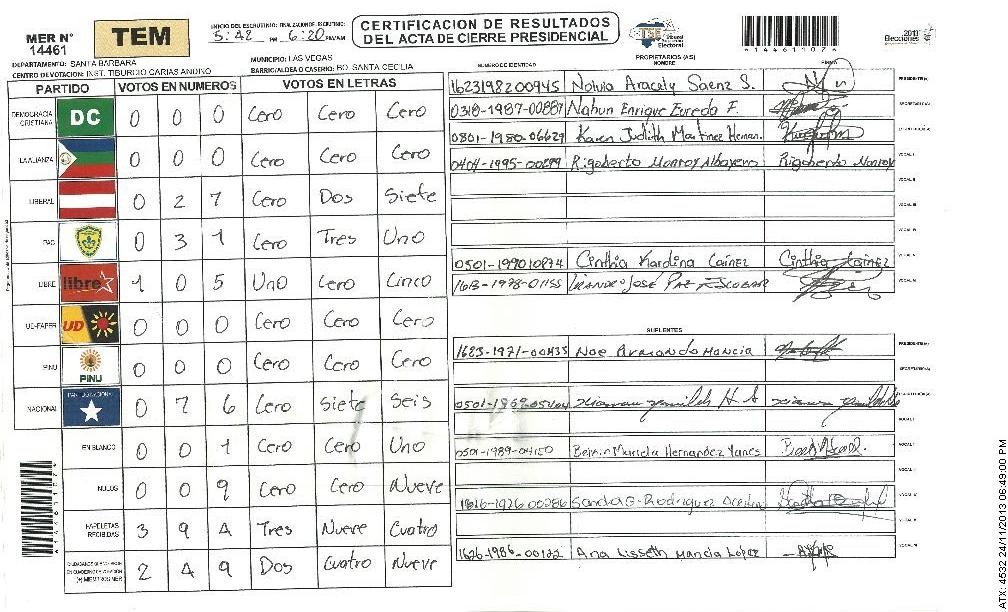 MER N° 14461
TEM
INICIO DEL ESCRUTINIO: FINALIZACION DE ESCRUTINIO:
5:42 PM 6:20 PM/AM
CERTIFICACION DE RESULTADOS
DEL ACTA DE CIERRE PRESIDENCIAL
TSE Tribunal Supremo Electoral
1446110?2
Elecciones 2013
DEPARTAMENTO: SANTA BARBARA MUNICIPIO: LAS VEGAS
CENTRO DE VOTACION: INST. TIBURCIO CARIAS ANDINO BARRIO/ALDEA O CASERIO: BO. SANTA CECILIA
PARTIDO VOTOS EN NUMEROS VOTOS EN LETRAS
DEMOCRACIA CRISTIANA DC 0 0 0 Cero Cero Cero
LA ALIANZA 0 0 0 Cero Cero Cero
LIBERAL 0 2 7 Cero Dos Siete
PAC 0 3 1 Cero Tres Uno
LIBRE libre 1 0 5 Uno Cero Cinco
UD-FAPER UD 0 0 0 Cero Cero Cero
PINU PINU 0 0 0 Cero Cero Cero
NACIONAL 0 7 6 Cero Siete Seis
EN BLANCO 0 0 1 Cero Cero Uno
NULOS 0 0 9 Cero Cero Nueve
PAPELETAS RECIBIDAS 3 9 4 Tres Nueve Cuatro
2 4 9 Dos Cuatro Nueve
NUMERO DE IDENTIDAD PROPIETARIOS (AS) NOMBRE FIRMA
1623198200945 Nolvia Aracely Saenz S. PRESIDENTE(A)
0318-1987-00887 Nahun Enrique Eureda F. SECRETARIO(A)
0801-1980-06629 Karen Judith Martinez Hernan.
0404-1995-00299 Rigoberto Monroy Rigoberto Monroy VOCAL I
VOCAL II
VOCAL III
VOCAL IV
0501-199010874 Cinthia Karolina Caínez Cinthia Cainez VOCAL V
José Paz Escobar
SUPLENTES
1623-1971-00433 Noe Armando Mancia PRESIDENTE(A)
SECRETARIO(A)
H. A
0501-1989-04150 Mariela Hernandez VOCAL II
VOCAL III
Sandra G. Rodriguez
1626-1986-00122 Ana Lisseth Mancia López
ATX: 4532 24/11/2013 06:49:00 PM